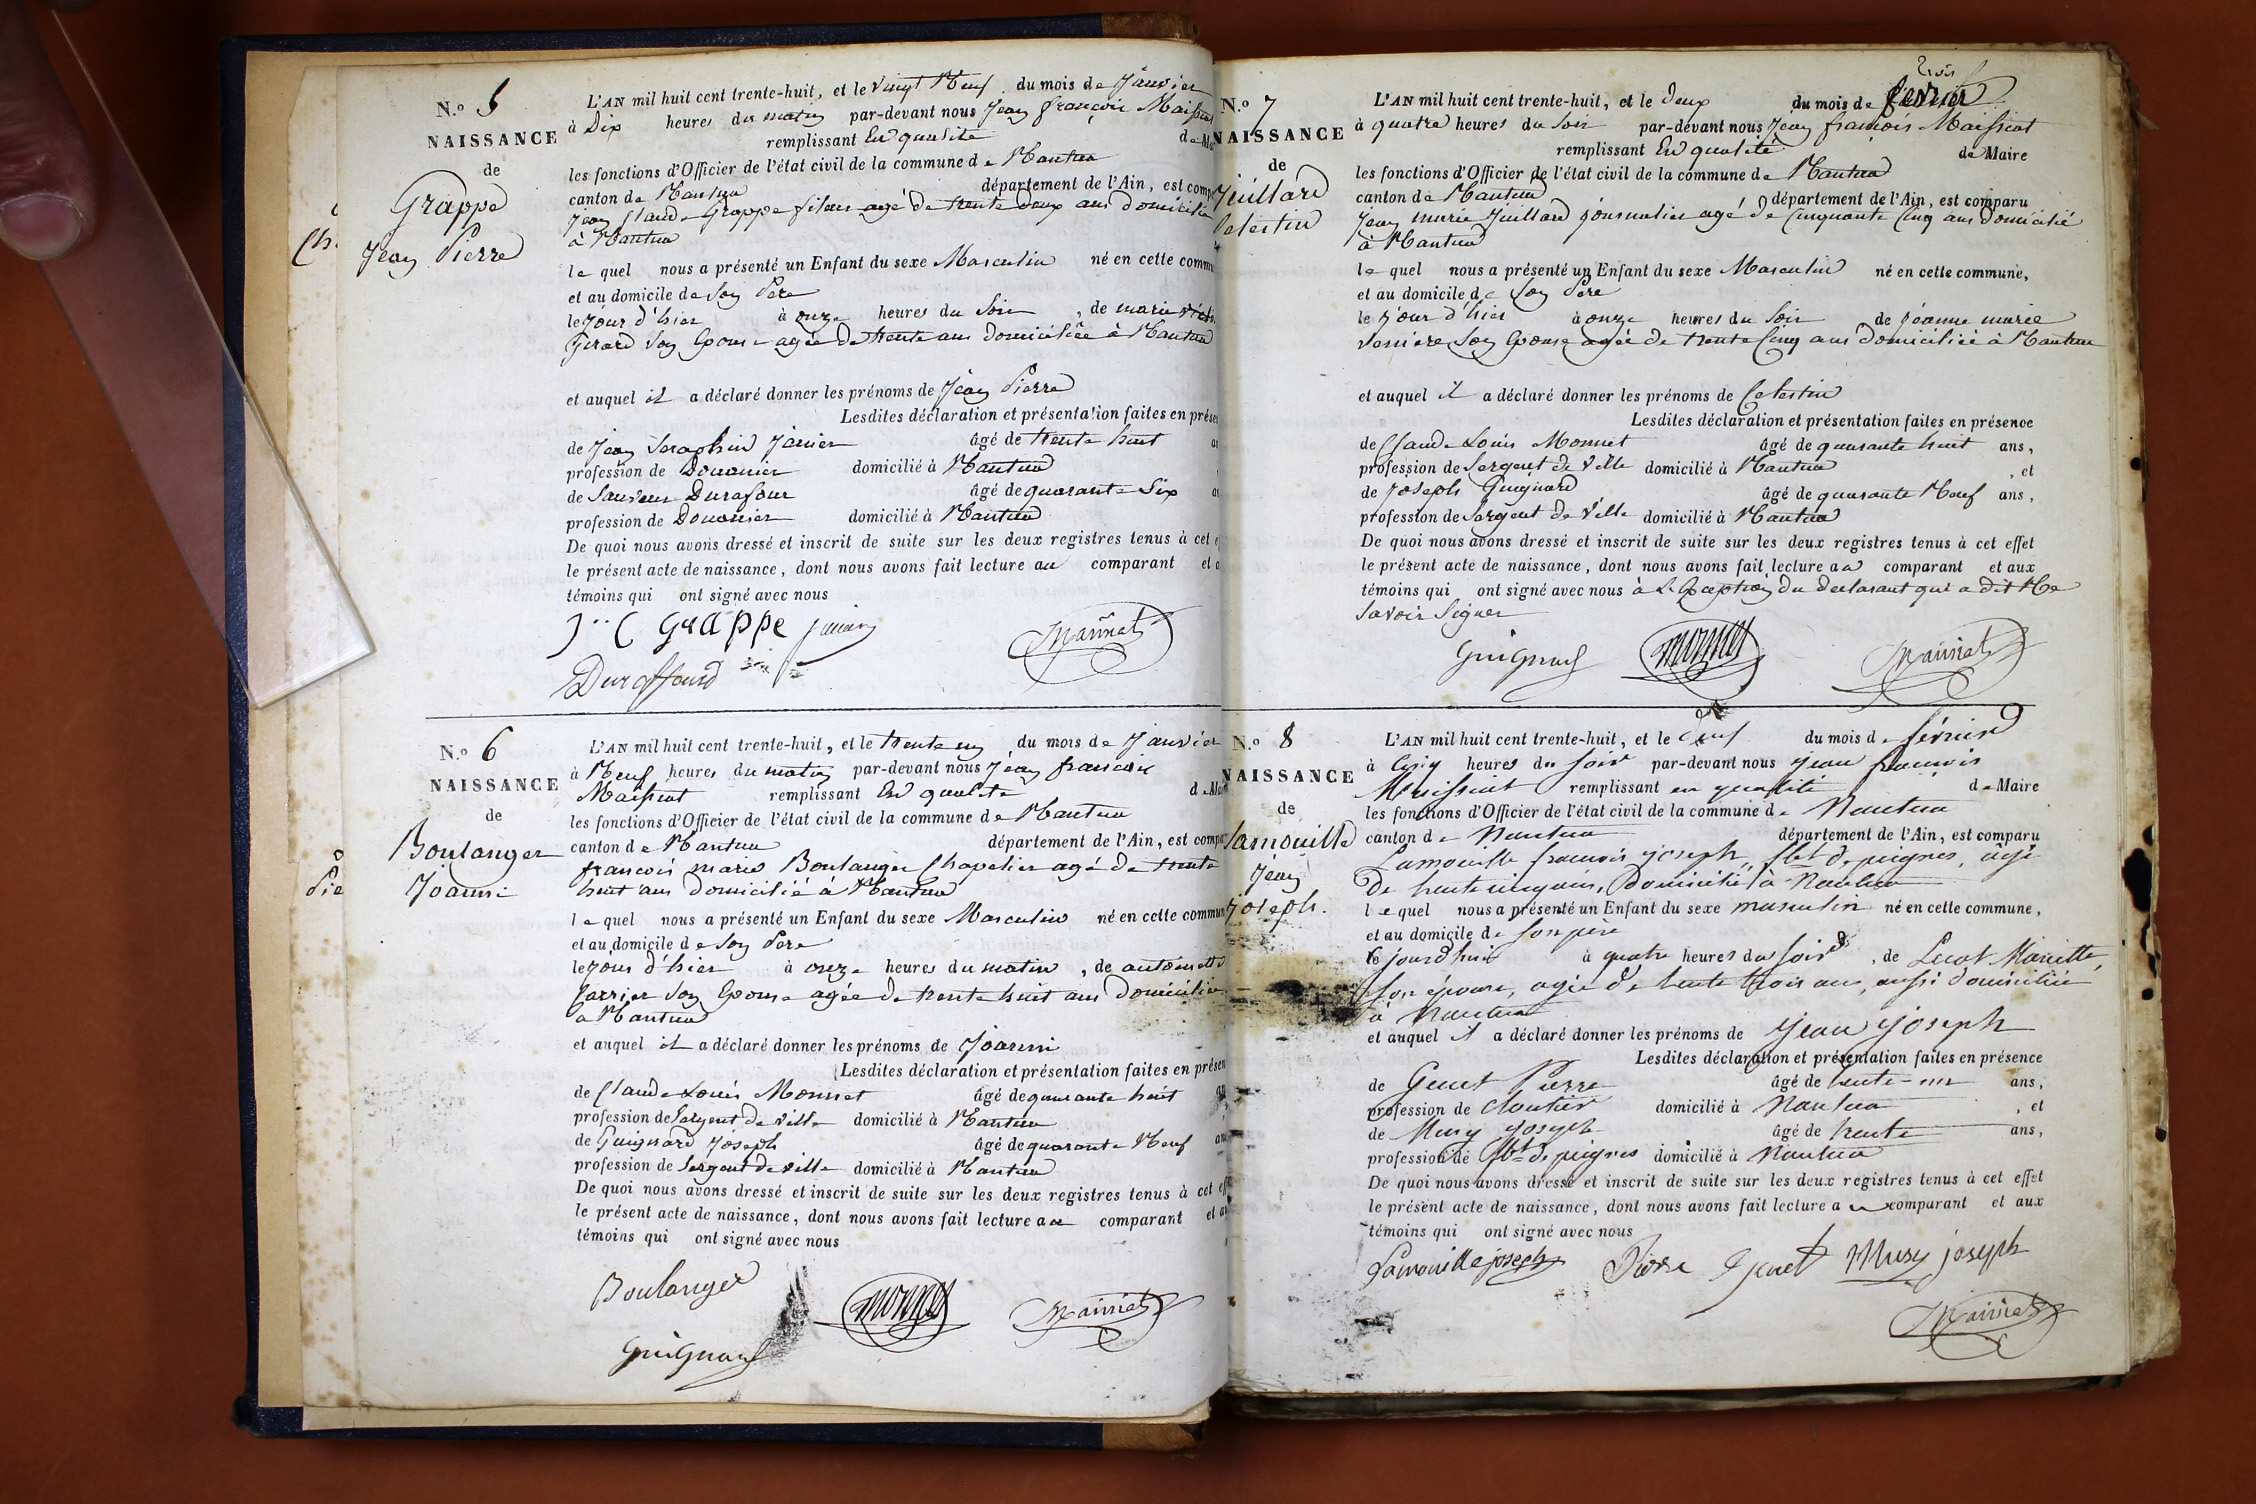 N.o 5
NAISSANCE
de
Grappe
Jean Pierre
L'AN mil huit cent trente-huit, et le vingt Neuf du mois de Janvier
à Dix heures du matin par-devant nous Jean françois Maissiat
remplissant En qualité de
les fonctions d'Officier de l'état civil de la commune de Nantua
canton de Nantua département de l'Ain, est
Jean Claude Grappe agé de trente deux ans domicilié
à Nantua
le quel nous a présenté un Enfant du sexe Masculin né en cette
et au domicile de Son Père
le jour d'hier à onze heures du Soir, de marie
Girard Son Epouse agée de trente ans domiciliée à Nantua
et auquel il a déclaré donner les prénoms de Jean Pierre
Lesdites déclaration et présentation faites en
de Jean Seraphin Janier âgé de trente huit
profession de Douanier domicilié à Nantua
de Sauveur Durafour âgé de quarante Six
profession de Douanier domicilié à Nantua
De quoi nous avons dressé et inscrit de suite sur les deux registres tenus à cet
le présent acte de naissance, dont nous avons fait lecture au comparant et
témoins qui ont signé avec nous
J C Grappe Janier
Duraffourd
N.o 6
NAISSANCE
de
Boulanger
Joanni
L'AN mil huit cent trente-huit, et le trente un du mois de Janvier
à Neuf heures du matin par-devant nous Jean françois
Maissiat remplissant En qualité de
les fonctions d'Officier de l'état civil de la commune de Nantua
canton de Nantua département de l'Ain, est
françois marie Boulanger Chapelier agé de trente
huit ans domicilié à Nantua
le quel nous a présenté un Enfant du sexe Masculin né en cette
et au domicile de Son Père
le jour d'hier à onze heures du matin, de antoinette
Carrier Son Epouse agée de trente huit ans domiciliée
à Nantua
et auquel il a déclaré donner les prénoms de Joanni
Lesdites déclaration et présentation faites en
de Claude Louis Monnet âgé de quarante huit
profession de Sergent de ville domicilié à Nantua
de Guignard Joseph âgé de quarante Neuf
profession de Sergent de ville domicilié à Nantua
De quoi nous avons dressé et inscrit de suite sur les deux registres tenus à cet
le présent acte de naissance, dont nous avons fait lecture au comparant et
témoins qui ont signé avec nous
Boulanger Monnet
Guignard
N.o 7
NAISSANCE
de
Juillard
Celestin
L'AN mil huit cent trente-huit, et le deux du mois de février
à quatre heures du Soir par-devant nous Jean françois Maissiat
remplissant En qualité de Maire
les fonctions d'Officier de l'état civil de la commune de Nantua
canton de Nantua département de l'Ain, est comparu
Jean marie Juillard journalier agé de Cinquante Cinq ans domicilié
à Nantua
le quel nous a présenté un Enfant du sexe Masculin né en cette commune,
et au domicile de Son Père
le jour d'hier à onze heures du Soir de jeanne marie
Son Epouse agée de trente Cinq ans domiciliée à Nantua
et auquel il a déclaré donner les prénoms de Celestin
Lesdites déclaration et présentation faites en présence
de Claude Louis Monnet âgé de quarante huit ans,
profession de Sergent de Ville domicilié à Nantua, et
de Joseph Guignard âgé de quarante Neuf ans,
profession de Sergent de Ville domicilié à Nantua
De quoi nous avons dressé et inscrit de suite sur les deux registres tenus à cet effet
le présent acte de naissance, dont nous avons fait lecture au comparant et aux
témoins qui ont signé avec nous à L'Exception du declarant qui a dit Ne
Savoir Signer
Guignard Monnet
N.o 8
NAISSANCE
de
Lamouille
Jean
Joseph.
L'AN mil huit cent trente-huit, et le du mois de février
à Cinq heures du soir par-devant nous jean francois
Maissiat remplissant en qualité de Maire
les fonctions d'Officier de l'état civil de la commune de Nantua
canton de Nantua département de l'Ain, est comparu
Lamouille francois joseph, fbt de peignes, agé
De trente cinq ans, Domicilié à Nantua
le quel nous a présenté un Enfant du sexe masculin né en cette commune,
et au domicile de son père
le jourd'huit à quatre heures du soir, de Mariette,
son épouse, agée de trente trois ans, aussi domiciliée
à Nantua
et auquel il a déclaré donner les prénoms de jean joseph
Lesdites déclaration et présentation faites en présence
de Genet Pierre âgé de trente-un ans,
profession de cloutier domicilié à Nantua, et
de Mury joseph âgé de trente ans,
profession de fbt de peignes domicilié à Nantua
De quoi nous avons dressé et inscrit de suite sur les deux registres tenus à cet effet
le présent acte de naissance, dont nous avons fait lecture au comparant et aux
témoins qui ont signé avec nous
Lamouille joseph Pierre Genet Mury joseph